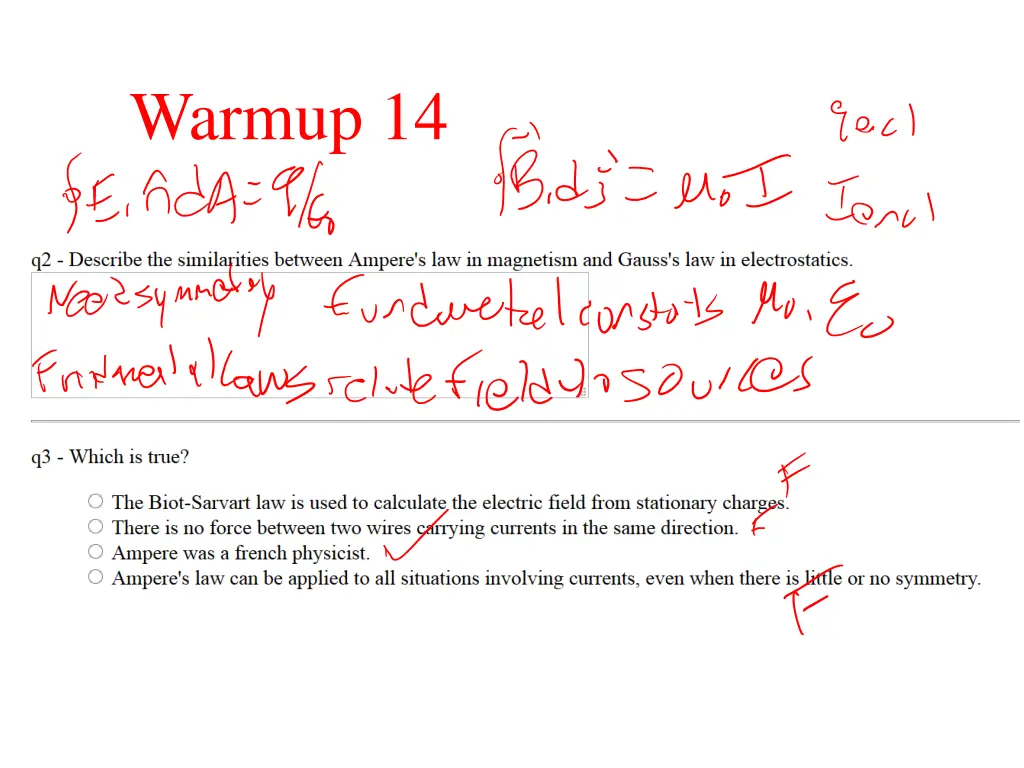 Warmup 14
qencl
∮E.n̂dA=q/ε₀
∮B⃗.dj⃗=μ₀I
Iencl
q2 - Describe the similarities between Ampere's law in magnetism and Gauss's law in electrostatics.
symmetry constants μ₀, ε₀
laws relate field to sources
q3 - Which is true?
The Biot-Sarvart law is used to calculate the electric field from stationary charges. F
There is no force between two wires carrying currents in the same direction. F
Ampere was a french physicist. ✓
Ampere's law can be applied to all situations involving currents, even when there is little or no symmetry.
F